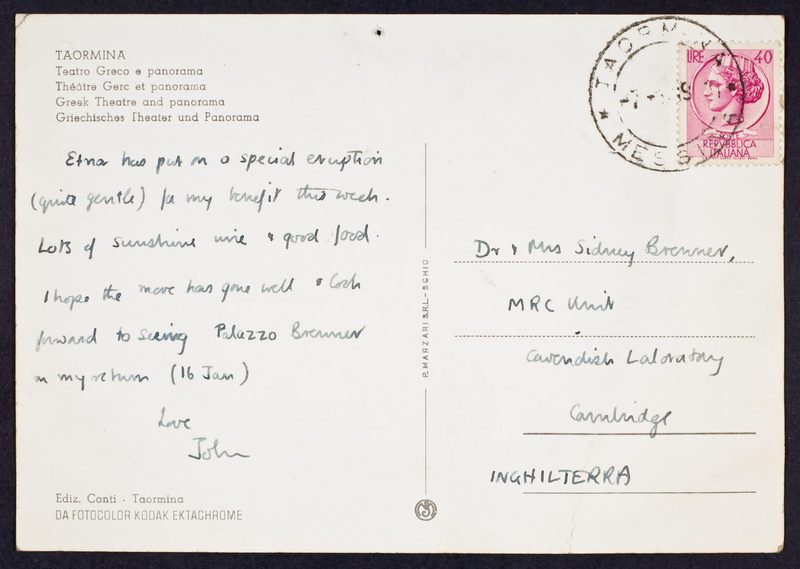 TAORMINA
Teatro Greco e panorama
Théâtre Gerc et panorama
Greek Theatre and panorama
Griechisches Theater und Panorama
Etna has put on a special eruption
(quite gentle) for my benefit this week.
Lots of sunshine wine & good food.
I hope the move has gone well & look
forward to seeing Palazzo Brenner
on my return (16 Jan)
Love
John
Ediz. Conti - Taormina
DA FOTOCOLOR KODAK EKTACHROME
P. MARZARI S.R.L. - SCHIO
TAORMINA
MESSINA
LIRE 40
REPVBBLICA
ITALIANA
Dr & Mrs Sidney Brenner,
MRC Unit
Cavendish Laboratory
Cambridge
INGHILTERRA